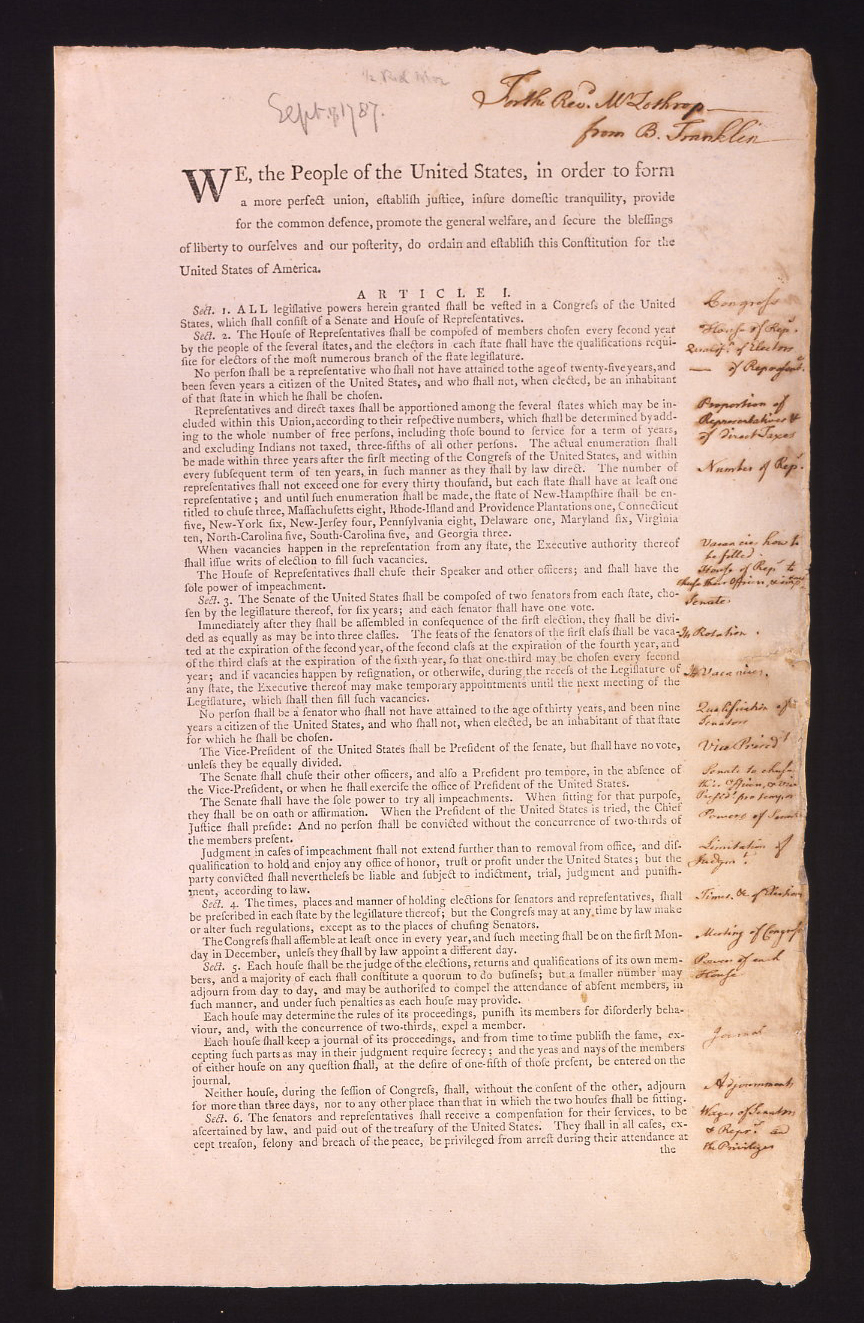 For the Revd. Mr Lothrop
from B. Franklin
Sept. 17 1787.
WE, the People of the United States, in order to form
a more perfect union, eſtabliſh juſtice, inſure domeſtic tranquility, provide
for the common defence, promote the general welfare, and ſecure the bleſſings
of liberty to ourſelves and our poſterity, do ordain and eſtabliſh this Conſtitution for the
United States of America.
ARTICLE I.
Sect. 1. ALL legiſlative powers herein granted ſhall be veſted in a Congreſs of the United
States, which ſhall conſiſt of a Senate and Houſe of Repreſentatives.
Sect. 2. The Houſe of Repreſentatives ſhall be compoſed of members choſen every ſecond year
by the people of the ſeveral ſtates, and the electors in each ſtate ſhall have the qualifications requi-
ſite for electors of the moſt numerous branch of the ſtate legiſlature.
No perſon ſhall be a repreſentative who ſhall not have attained to the age of twenty-five years, and
been ſeven years a citizen of the United States, and who ſhall not, when elected, be an inhabitant
of that ſtate in which he ſhall be choſen.
Repreſentatives and direct taxes ſhall be apportioned among the ſeveral ſtates which may be in-
cluded within this Union, according to their reſpective numbers, which ſhall be determined by add-
ing to the whole number of free perſons, including thoſe bound to ſervice for a term of years,
and excluding Indians not taxed, three-fifths of all other perſons. The actual enumeration ſhall
be made within three years after the firſt meeting of the Congreſs of the United States, and within
every ſubſequent term of ten years, in ſuch manner as they ſhall by law direct. The number of
repreſentatives ſhall not exceed one for every thirty thouſand, but each ſtate ſhall have at leaſt one
repreſentative; and until ſuch enumeration ſhall be made, the ſtate of New-Hampſhire ſhall be en-
titled to chuſe three, Maſſachuſetts eight, Rhode-Iſland and Providence Plantations one, Connecticut
five, New-York ſix, New-Jerſey four, Pennſylvania eight, Delaware one, Maryland ſix, Virginia
ten, North-Carolina five, South-Carolina five, and Georgia three.
When vacancies happen in the repreſentation from any ſtate, the Executive authority thereof
ſhall iſſue writs of election to fill ſuch vacancies.
The Houſe of Repreſentatives ſhall chuſe their Speaker and other officers; and ſhall have the
ſole power of impeachment.
Sect. 3. The Senate of the United States ſhall be compoſed of two ſenators from each ſtate, cho-
ſen by the legiſlature thereof, for ſix years; and each ſenator ſhall have one vote.
Immediately after they ſhall be aſſembled in conſequence of the firſt election, they ſhall be divi-
ded as equally as may be into three claſſes. The ſeats of the ſenators of the firſt claſs ſhall be vaca-
ted at the expiration of the ſecond year, of the ſecond claſs at the expiration of the fourth year, and
of the third claſs at the expiration of the ſixth year, ſo that one-third may be choſen every ſecond
year; and if vacancies happen by reſignation, or otherwiſe, during the receſs of the Legiſlature of
any ſtate, the Executive thereof may make temporary appointments until the next meeting of the
Legiſlature, which ſhall then fill ſuch vacancies.
No perſon ſhall be a ſenator who ſhall not have attained to the age of thirty years, and been nine
years a citizen of the United States, and who ſhall not, when elected, be an inhabitant of that ſtate
for which he ſhall be choſen.
The Vice-Preſident of the United States ſhall be Preſident of the ſenate, but ſhall have no vote,
unleſs they be equally divided.
The Senate ſhall chuſe their other officers, and alſo a Preſident pro tempore, in the abſence of
the Vice-Preſident, or when he ſhall exerciſe the office of Preſident of the United States.
The Senate ſhall have the ſole power to try all impeachments. When ſitting for that purpoſe,
they ſhall be on oath or affirmation. When the Preſident of the United States is tried, the Chief
Juſtice ſhall preſide: And no perſon ſhall be convicted without the concurrence of two-thirds of
the members preſent.
Judgment in caſes of impeachment ſhall not extend further than to removal from office, and diſ-
qualification to hold and enjoy any office of honor, truſt or profit under the United States; but the
party convicted ſhall nevertheleſs be liable and ſubject to indictment, trial, judgment and puniſh-
ment, according to law.
Sect. 4. The times, places and manner of holding elections for ſenators and repreſentatives, ſhall
be preſcribed in each ſtate by the legiſlature thereof; but the Congreſs may at any time by law make
or alter ſuch regulations, except as to the places of chuſing Senators.
The Congreſs ſhall aſſemble at leaſt once in every year, and ſuch meeting ſhall be on the firſt Mon-
day in December, unleſs they ſhall by law appoint a different day.
Sect. 5. Each houſe ſhall be the judge of the elections, returns and qualifications of its own mem-
bers, and a majority of each ſhall conſtitute a quorum to do buſineſs; but a ſmaller number may
adjourn from day to day, and may be authoriſed to compel the attendance of abſent members, in
ſuch manner, and under ſuch penalties as each houſe may provide.
Each houſe may determine the rules of its proceedings, puniſh its members for diſorderly beha-
viour, and, with the concurrence of two-thirds, expel a member.
Each houſe ſhall keep a journal of its proceedings, and from time to time publiſh the ſame, ex-
cepting ſuch parts as may in their judgment require ſecrecy; and the yeas and nays of the members
of either houſe on any queſtion ſhall, at the deſire of one-fifth of thoſe preſent, be entered on the
journal.
Neither houſe, during the ſeſſion of Congreſs, ſhall, without the conſent of the other, adjourn
for more than three days, nor to any other place than that in which the two houſes ſhall be ſitting.
Sect. 6. The ſenators and repreſentatives ſhall receive a compenſation for their ſervices, to be
aſcertained by law, and paid out of the treaſury of the United States. They ſhall in all caſes, ex-
cept treaſon, felony and breach of the peace, be privileged from arreſt during their attendance at
the
Congreſs
Houſe of Rep.
Qualifns of Electors
— of Repreſent.
Proportion of
Repreſentatives &
of Direct Taxes
Number of Rep.
Vacancies how to
be filled
Houſe of Rep. to
chuſe their Officers,
Senate.
Its Rotation.
Its Vacancies.
Qualification of
Senators
Vice Presidt
Senate to chuſe
their Officers, &
Preſidt pro tempor
Powers of Senate
Limitation of
Judgmt.
Times &c of Elections
Meeting of Congreſs
Powers of each
Houſe
Journal
Adjournments
Wages of Senators
& Reprs. and
the Privileges